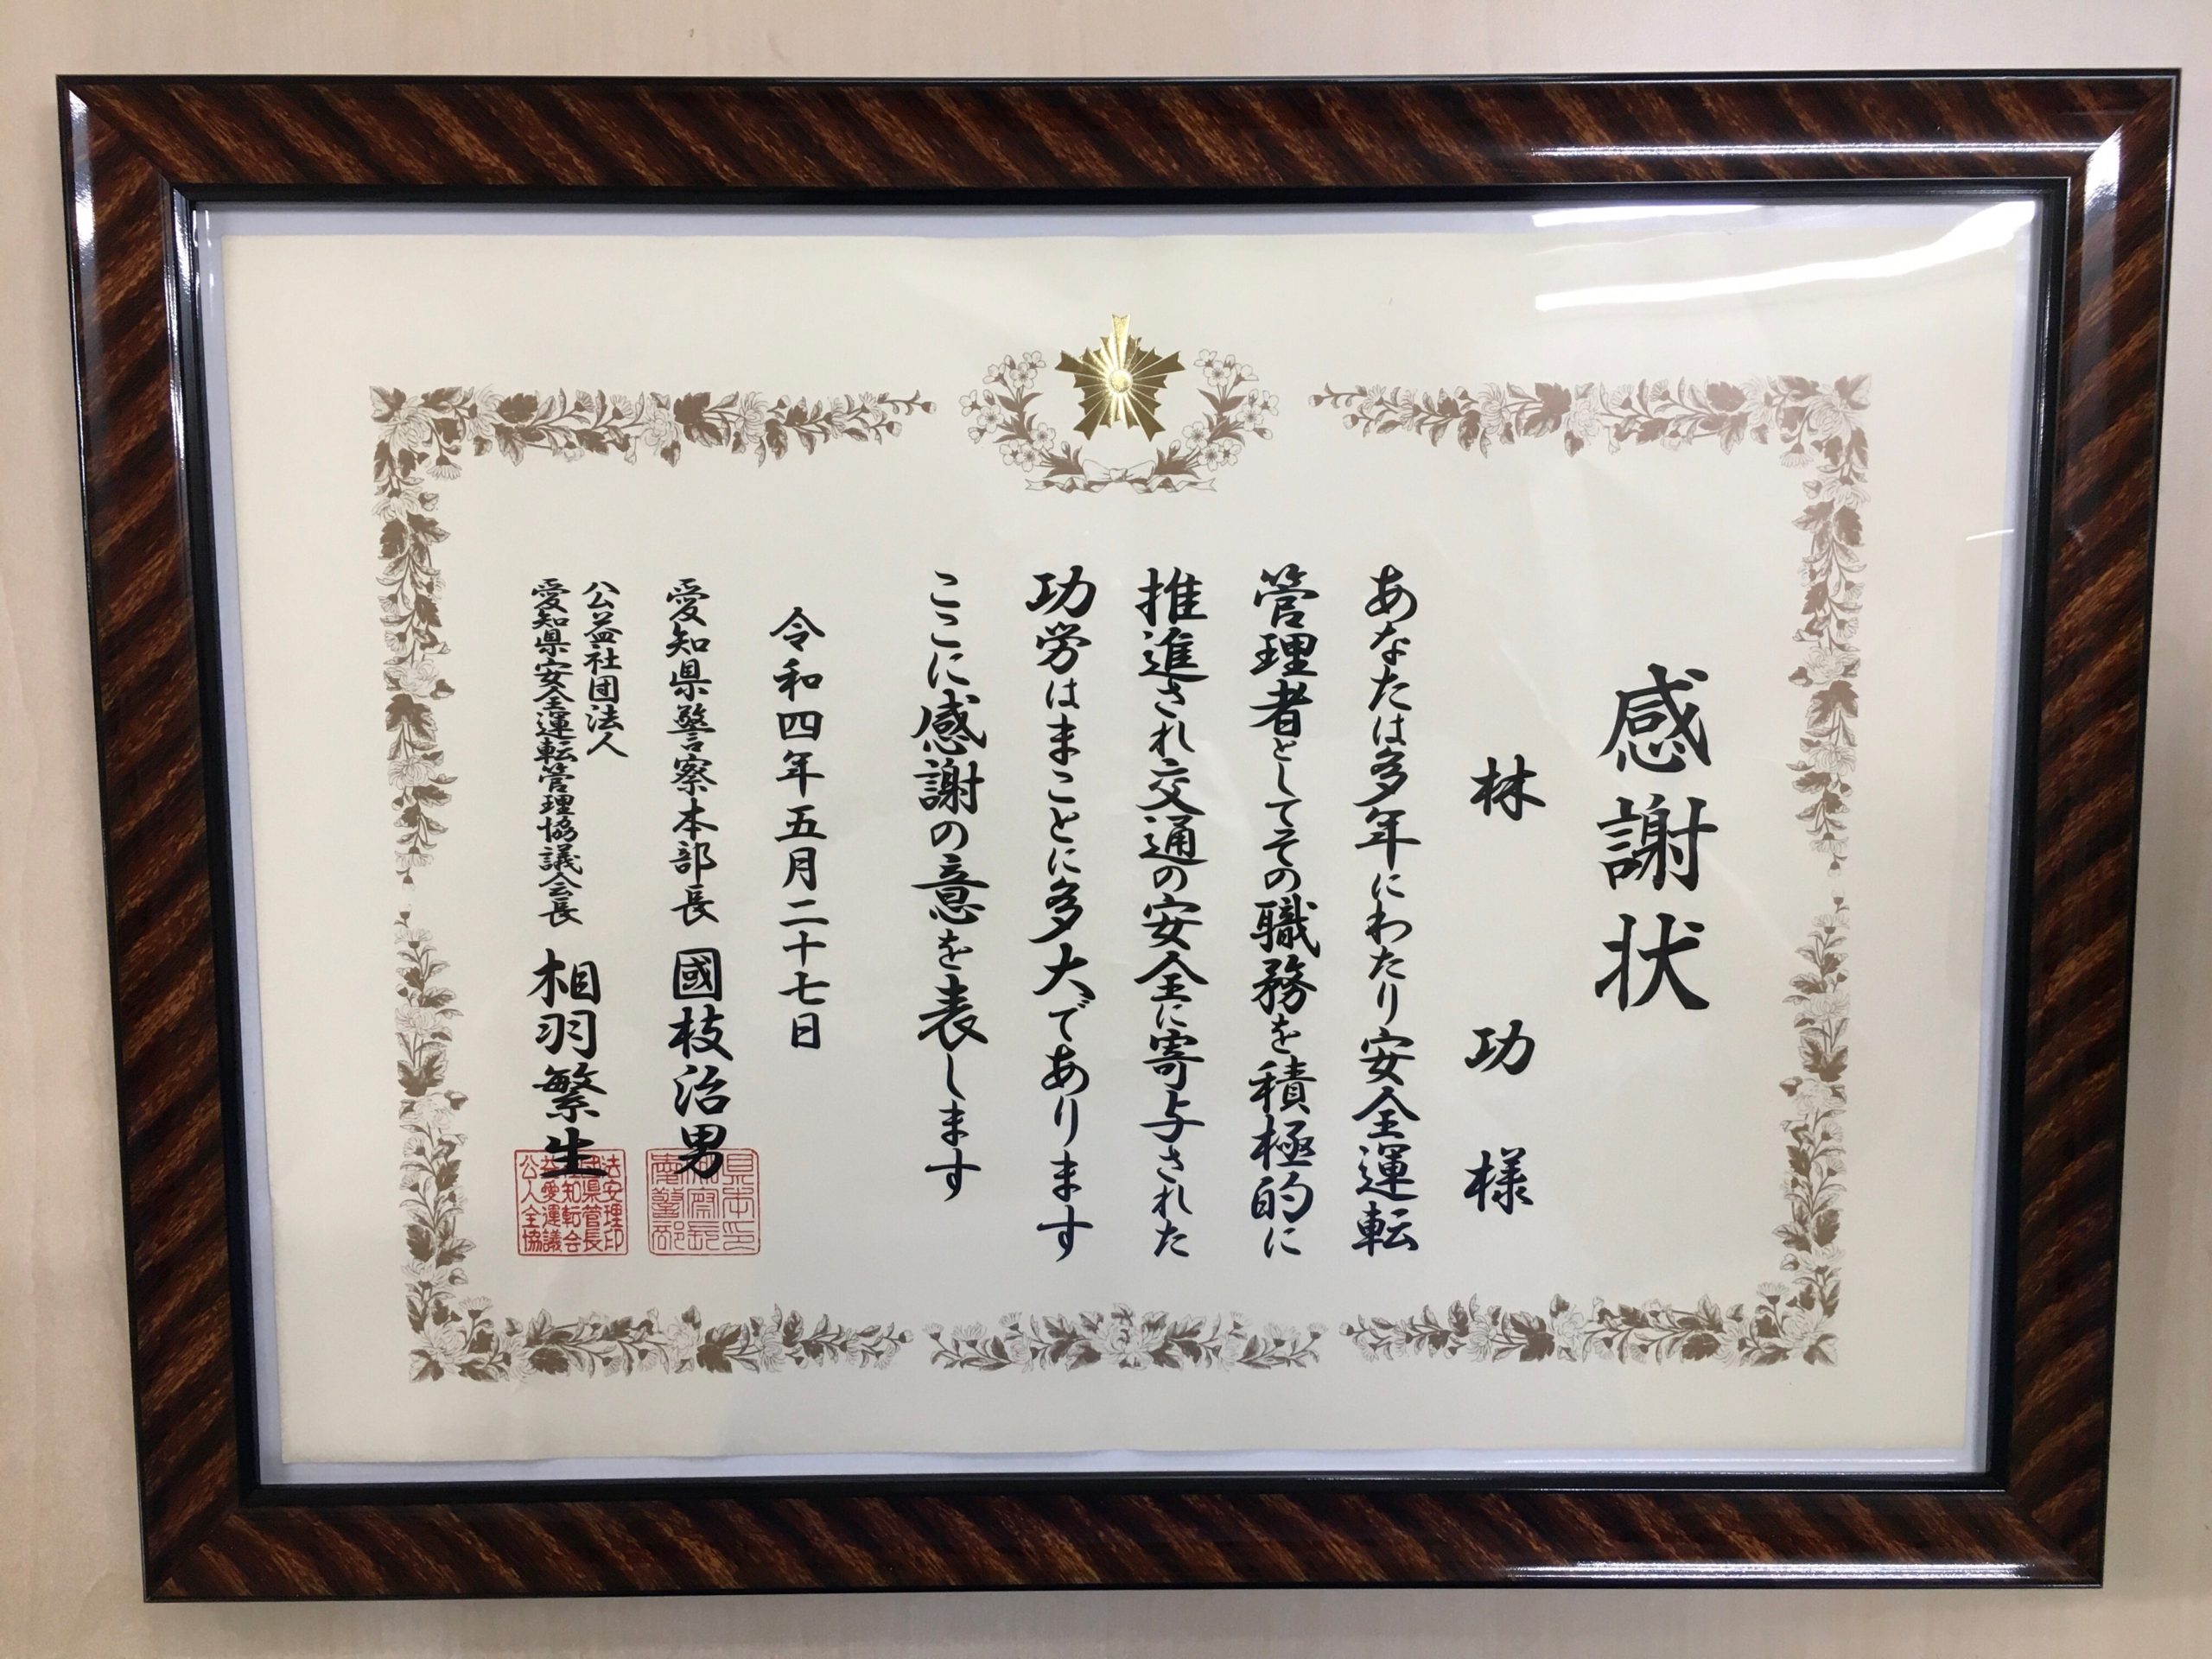 感謝状
林 功 様
あなたは多年にわたり安全運転
管理者としてその職務を積極的に
推進され交通の安全に寄与された
功労はまことに多大であります
ここに感謝の意を表します
令和四年五月二十七日
愛知県警察本部長 國枝治男
公益社団法人
愛知県安全運転管理協議会長 相羽繁生